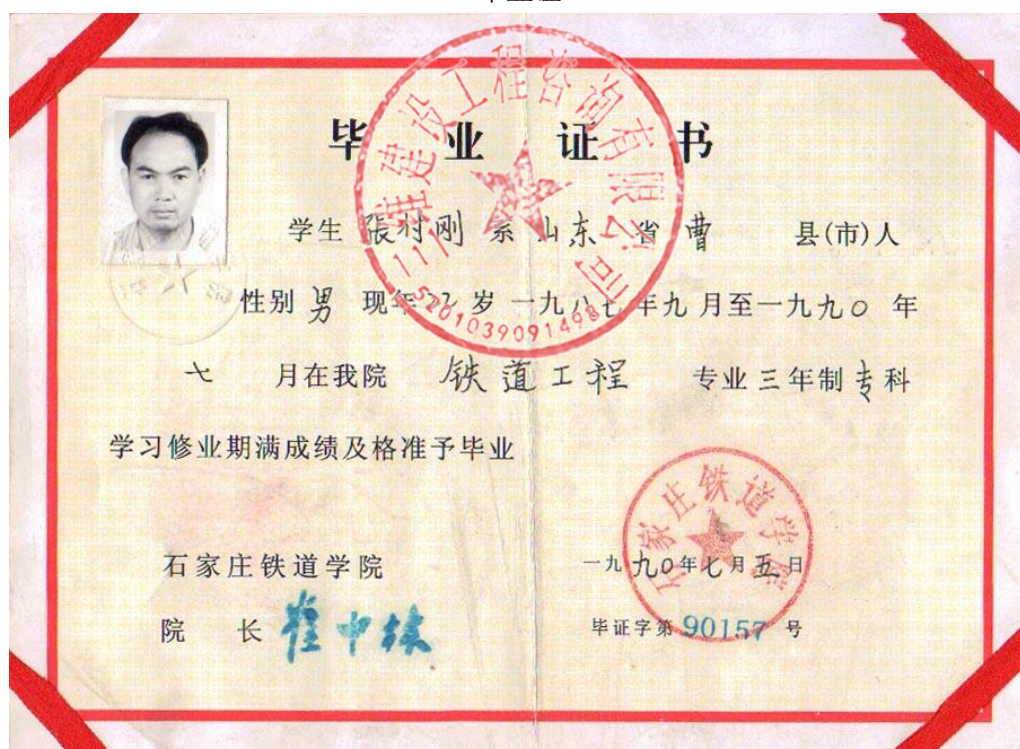 毕业证书
学生 張付刚 系 山东 省 曹 县(市)人
性别 男 现年 22 岁 一九八七年九月至一九九〇年
七 月在我院 铁道工程 专业三年制专科
学习修业期满成绩及格准予毕业
石家庄铁道学院
一九九〇年七月五日
院长 崔中林
毕证字第 90157 号
石家庄铁道学院
建设工程咨询有限公司
5201039091498